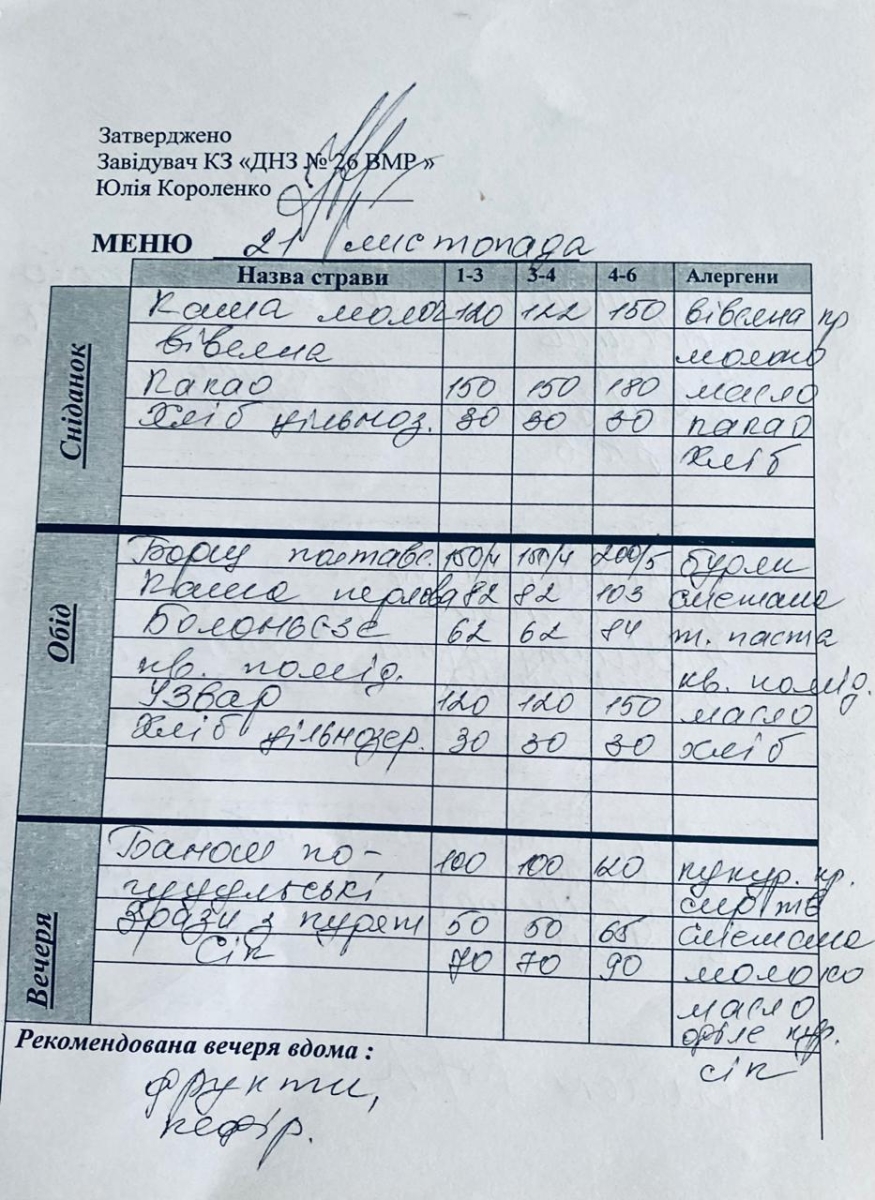 Затверджено
Завідувач КЗ «ДНЗ № 26 ВМР »
Юлія Короленко
МЕНЮ 21 листопада
Назва страви 1-3 3-4 4-6 Алергени
Сніданок
Каша молоч 120 122 150 вівсяна кр
вівсяна молоко
Какао 150 150 180 масло
Хліб цільноз. 30 30 30 какао
хліб
Обід
Борщ полтавс. 150/4 150/4 200/5 буряк
Каша перлова 82 82 103 сметана
Болоньєзе 62 62 84 т. паста
кв. помід. кв. помід.
Узвар 120 120 150 масло
Хліб цільнозер. 30 30 30 хліб
Вечеря
Банош по- 100 100 120 кукур. кр.
гуцульські сир тв
Зрази з куркт 50 50 65 сметана
Сік 70 70 90 молоко
масло
філе кур.
сік
Рекомендована вечеря вдома :
фрукти,
кефір.